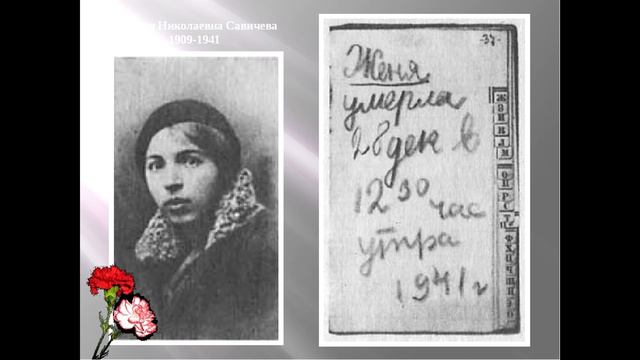 Николаевна Савичева
1909-1941
-37-
Женя
умерла
28 дек в
12 30 час
утра
1941 г